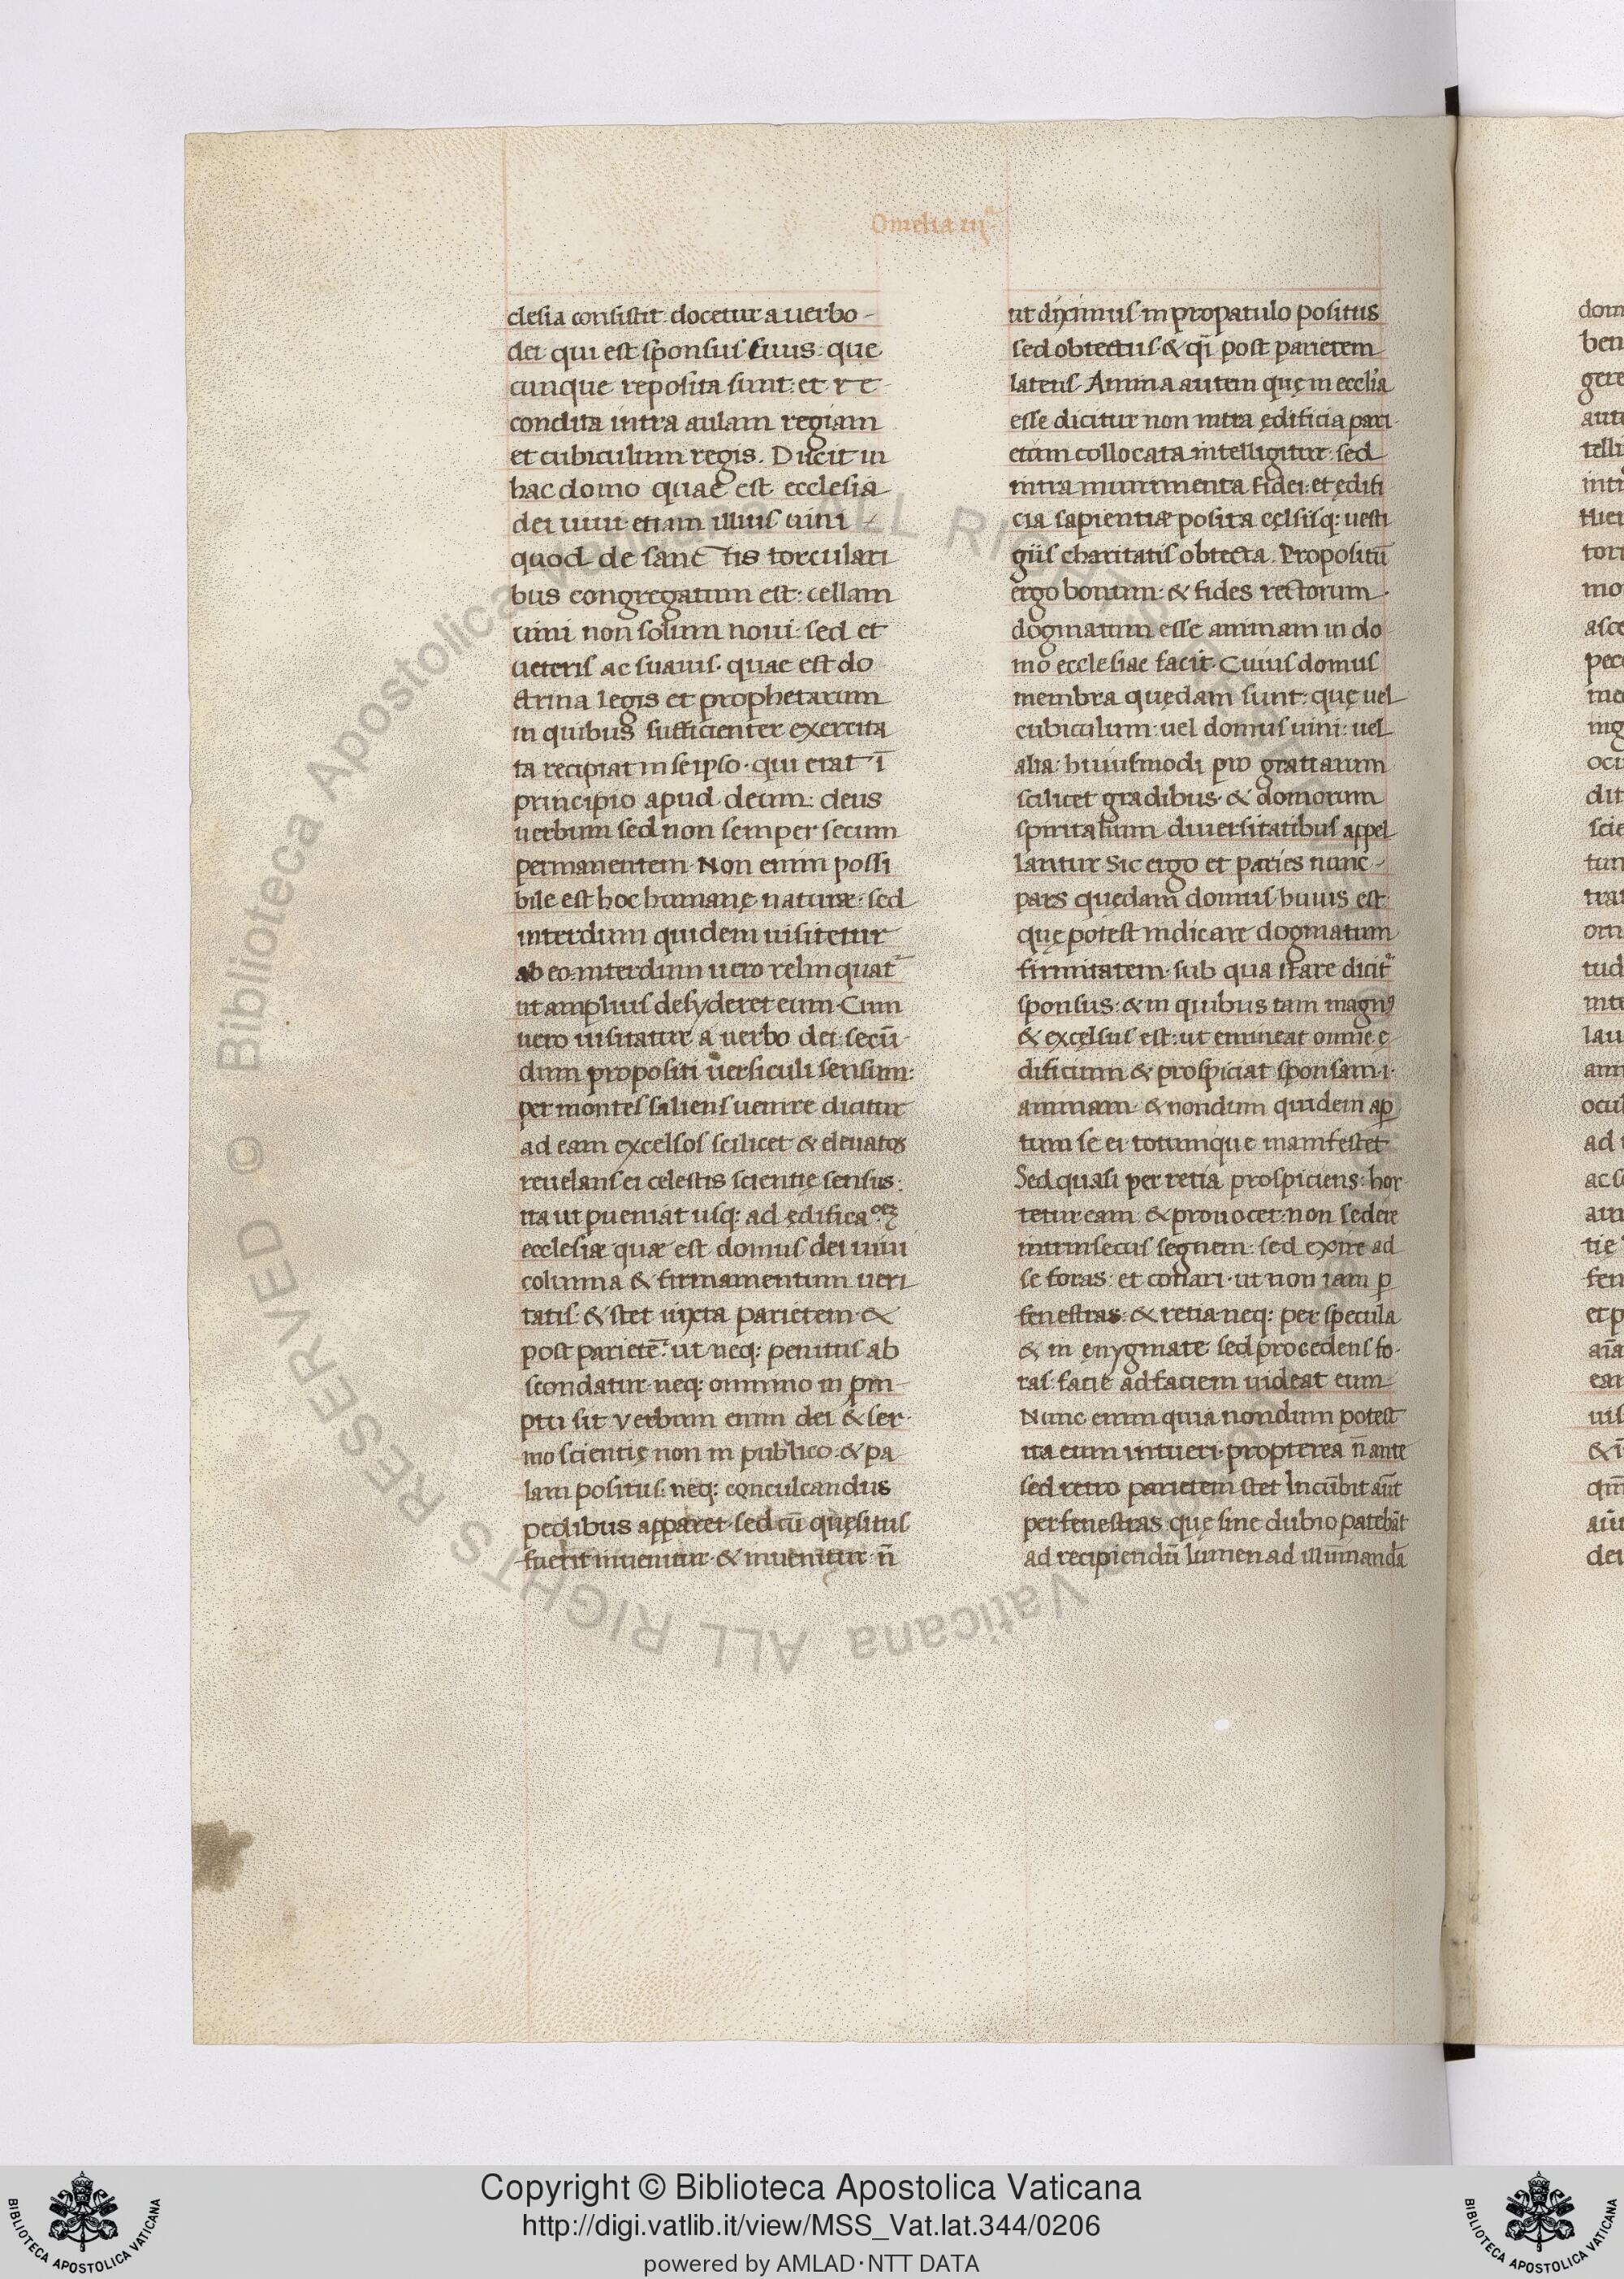 Omelia iijª
clesia consistit: docetur a uerbo-
dei qui est sponsus eiuus: que
cunque reposita sunt: et re-
condita intra aulam regiam
et cubiculum regis. Ducit in
hac domo quae est ecclesia
dei uiui etiam illius uini -
quod de sanctis torculari
bus congregatum est: cellam
uini non solum noui: sed et
ueteris ac suauis. quae est do
ctrina legis et prophetarum
in quibus sufficienter exercita
ta recipiat in se ipso. qui erat ī
principio apud deum: deus
uerbum sed non semper secum
permanentem. Non enim possi
bile est hoc humanę naturæ. sed
interdum quidem uisitetur
ab eo. interdum uero relinquat᷑
ut amplius desyderet eum. Cum
uero uisitatur a uerbo dei: secū-
dum propositi uersiculi sensum:
per montes saliens uenire dicitur
ad eam excelsos scilicet & eleuatos
reuelans ei celestis scientię sensus:
ita ut pueniat usq: ad ędificaoēȝ
ecclesiæ quæ est domus dei uiui
columna & firmamentum ueri
tatis. & stet iuxta parietem. &
post parietē. ut neq: penitus ab
scondatur. neq: omnino in pm-
ptu sit. Verbum enim dei & ser-
mo scientię non in publico. & pa
lam positus: neq: conculcandus
pedibus apparet. sed cū quęsitus
fuerit inuenitur. & inuenitur. n̄
ut diximus in propatulo positus
sed obtectus. & q̄i post parietem
latens. Anima autem quę in ecclīa
esse dicitur non intra ędificia pari-
etum collocata intelligitur. sed
intra munimenta fidei. et ędifi
cia sapientiæ posita cęlsisq: uesti
giis charitatis obtecta. Propositū
ergo bonum: & fides rectorum
dogmatum esse animam in do
mo ecclesiae facit. Cuius domus
membra quędam sunt: quę uel
cubiculum: uel domus uini: uel
alia: huiusmodi pro gratiarum
scilicet gradibus. & donorum
spiritalium diuersitatibus appel
lantur. Sic ergo et paries nunc -
pars quędam domus huius est:
quę potest indicare dogmatum
firmitatem. sub qua stare dicit᷑
sponsus: & in quibus tam magnꝰ
& excęlsus est: ut emineat omne ę
dificium & prospiciat sponsam .i.
animam. & nondum quidem aꝑ
tum se ei totumque manifestet
Sed quasi per retia prospiciens: hor
tetur eam & prouocet: non sedere
intrinsecus segnem: sed exire ad
se foras: et conari. ut non iam ꝑ
fenestras: & retia neq: per specula
& in ęnygmate sed procedens fo-
ras: facie ad faciem uideat eum
Nunc enim quia nondum potest
ita eum intueri. propterea n̄ ante
sed retro parietem stet. Incūbit aūt
per fenestras. quę sine dubio patebāt
ad recipiendū lumen ad illūinandā
Copyright © Biblioteca Apostolica Vaticana
http://digi.vatlib.it/view/MSS_Vat.lat.344/0206
powered by AMLAD·NTT DATA
BIBLIOTECA APOSTOLICA VATICANA
BIBLIOTECA APOSTOLICA VATICANA